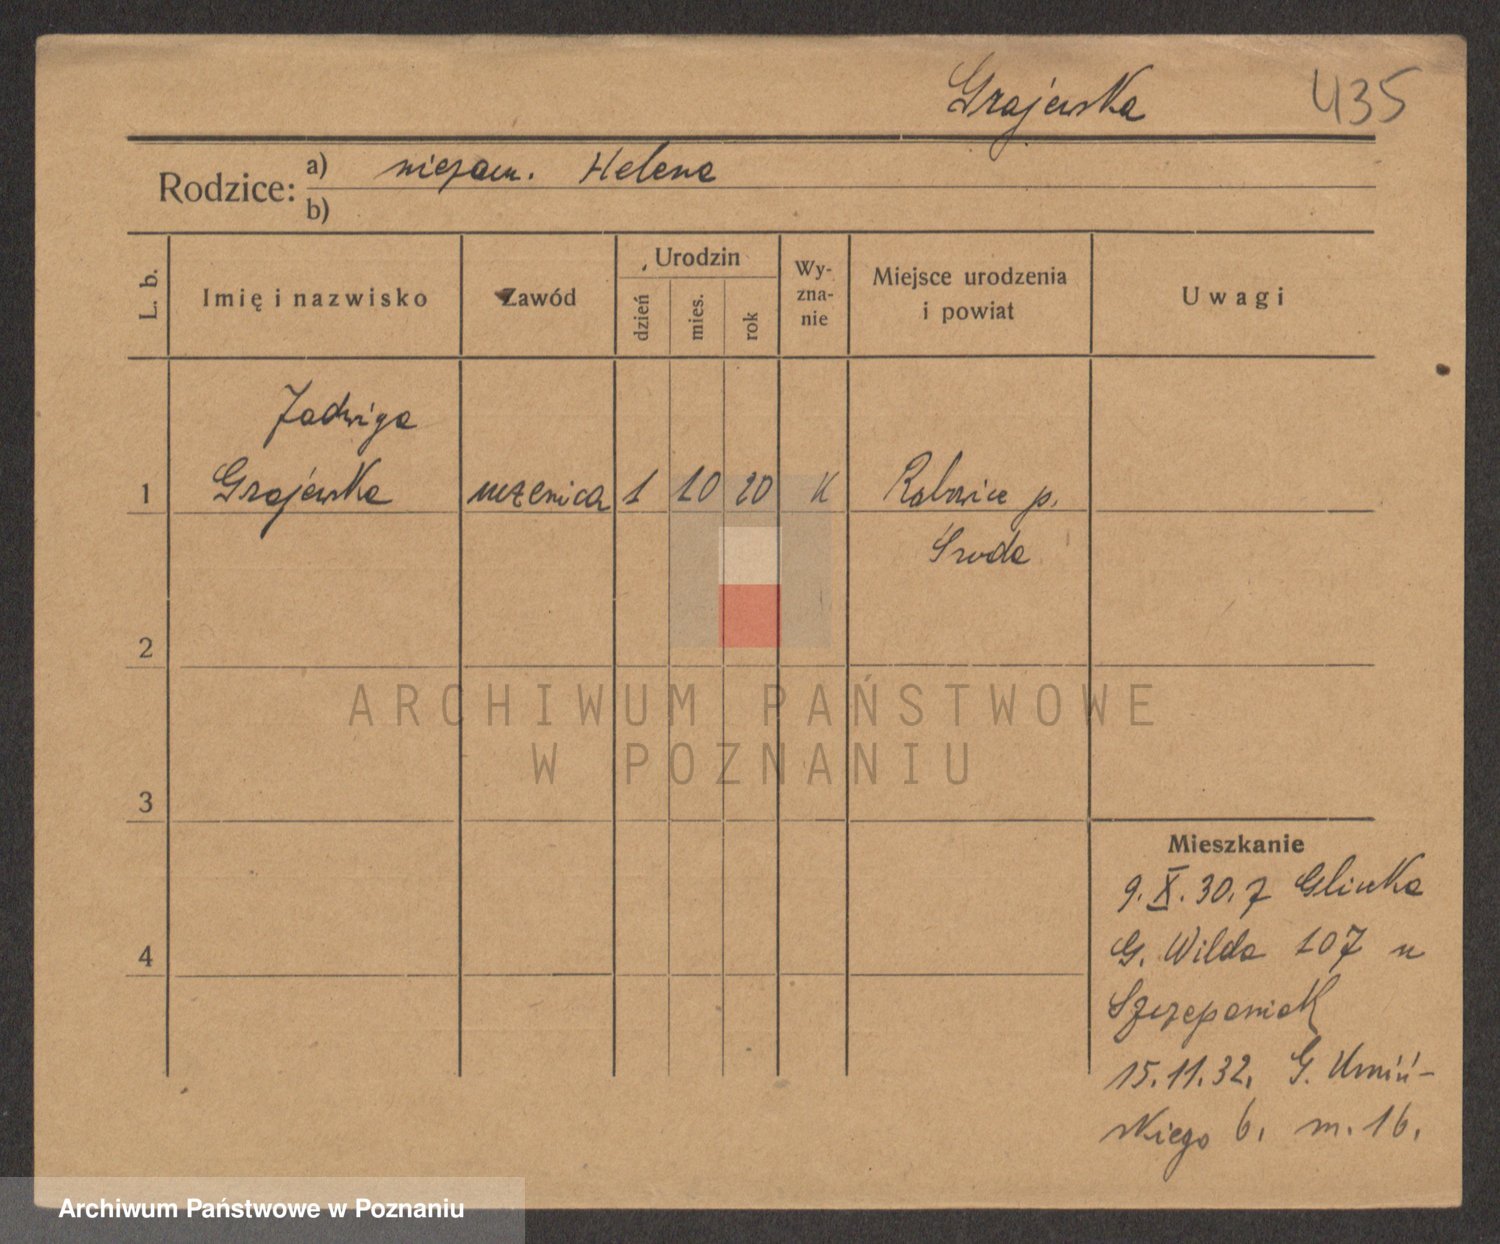 Grajewska 435
Rodzice: a) niezam. Helena
b)
L. b. Imię i nazwisko Zawód Urodzin dzień mies. rok Wy-zna-nie Miejsce urodzenia i powiat Uwagi
Jadwiga
1 Grajewska uczenica 1 10 20 K p.
Środa
2
ARCHIWUM PAŃSTWOWE
W POZNANIU
3
Mieszkanie
9.X.30. z Glinka
4 G. Wilda 107 u
Szczepaniak
15.11.32. G. Umiń-
skiego 6. m. 16.
Archiwum Państwowe w Poznaniu